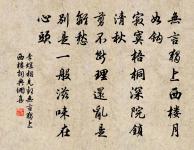 無言獨上西樓月
如鉤
寂寞梧桐深院鎖
清秋
剪不斷理還亂是
離愁
別是一般滋味在
心頭
李煜相見歡無言獨上
西樓詞